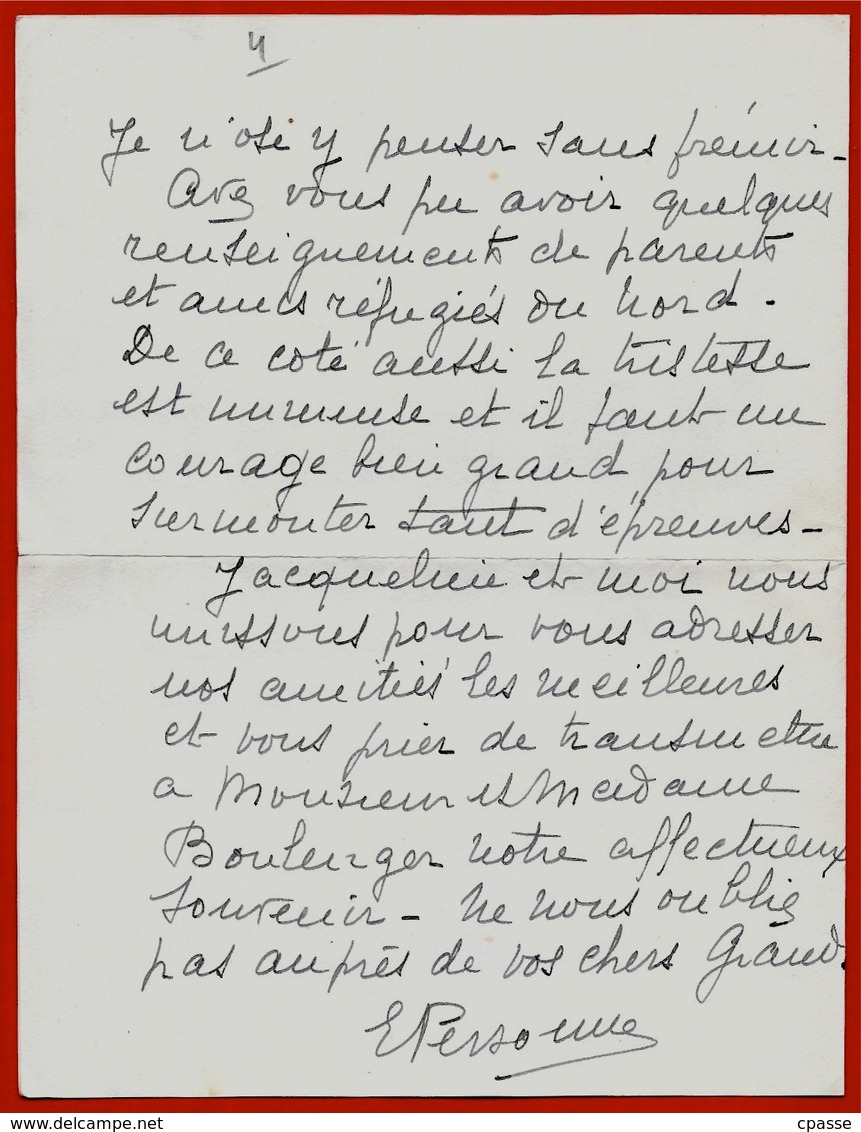 4
Je n'ose y penser sans frémir -
Avez vous pu avoir quelques
renseignements de parents
et amis réfugiés du Nord.
De ce coté aussi la tristesse
est immense et il faut un
courage bien grand pour
surmonter tant d'épreuves -
Jacqueline et moi nous
unissons pour vous adresser
nos amitiés les meilleures
et vous prier de transmettre
a Monsieur et Madame
Boulenger notre affectueux
souvenir - Ne nous oubliez
pas auprès de vos chers Grand.
E Personne
delcampe.net
cpasse